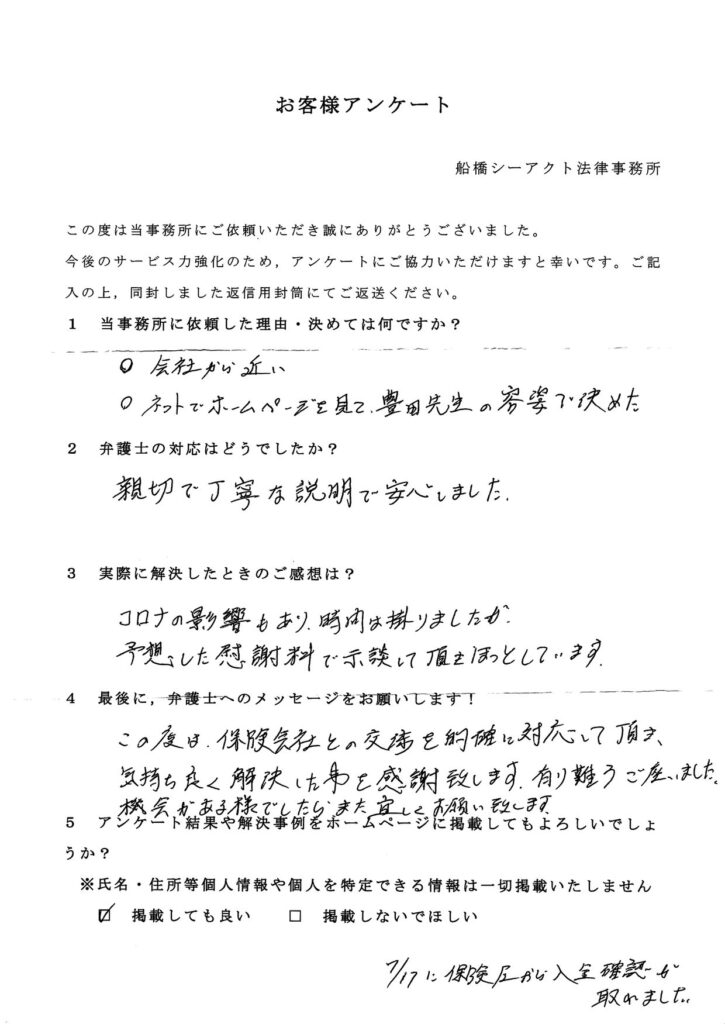 お客様アンケート
船橋シーアクト法律事務所
この度は当事務所にご依頼いただき誠にありがとうございました。
今後のサービス力強化のため，アンケートにご協力いただけますと幸いです。ご記
入の上，同封しました返信用封筒にてご返送ください。
1 当事務所に依頼した理由・決めては何ですか？
○ 会社から近い
○ ネットでホームページを見て、豊田先生の容姿で決めた
2 弁護士の対応はどうでしたか？
親切で丁寧な説明で安心しました.
3 実際に解決したときのご感想は？
コロナの影響もあり、時間は掛りましたが.
予想した慰謝料で示談して頂きほっとしています.
4 最後に，弁護士へのメッセージをお願いします！
この度は、保険会社との交渉を的確に対応して頂き、
気持ち良く解決した事を感謝致します.有り難うご座いました。
機会がある様でしたらまた宜しくお願い致します
5 アンケート結果や解決事例をホームページに掲載してもよろしいでしょ
うか？
※氏名・住所等個人情報や個人を特定できる情報は一切掲載いたしません
☑ 掲載しても良い □ 掲載しないでほしい
7/17に保険屋から入金確認が
取れました.